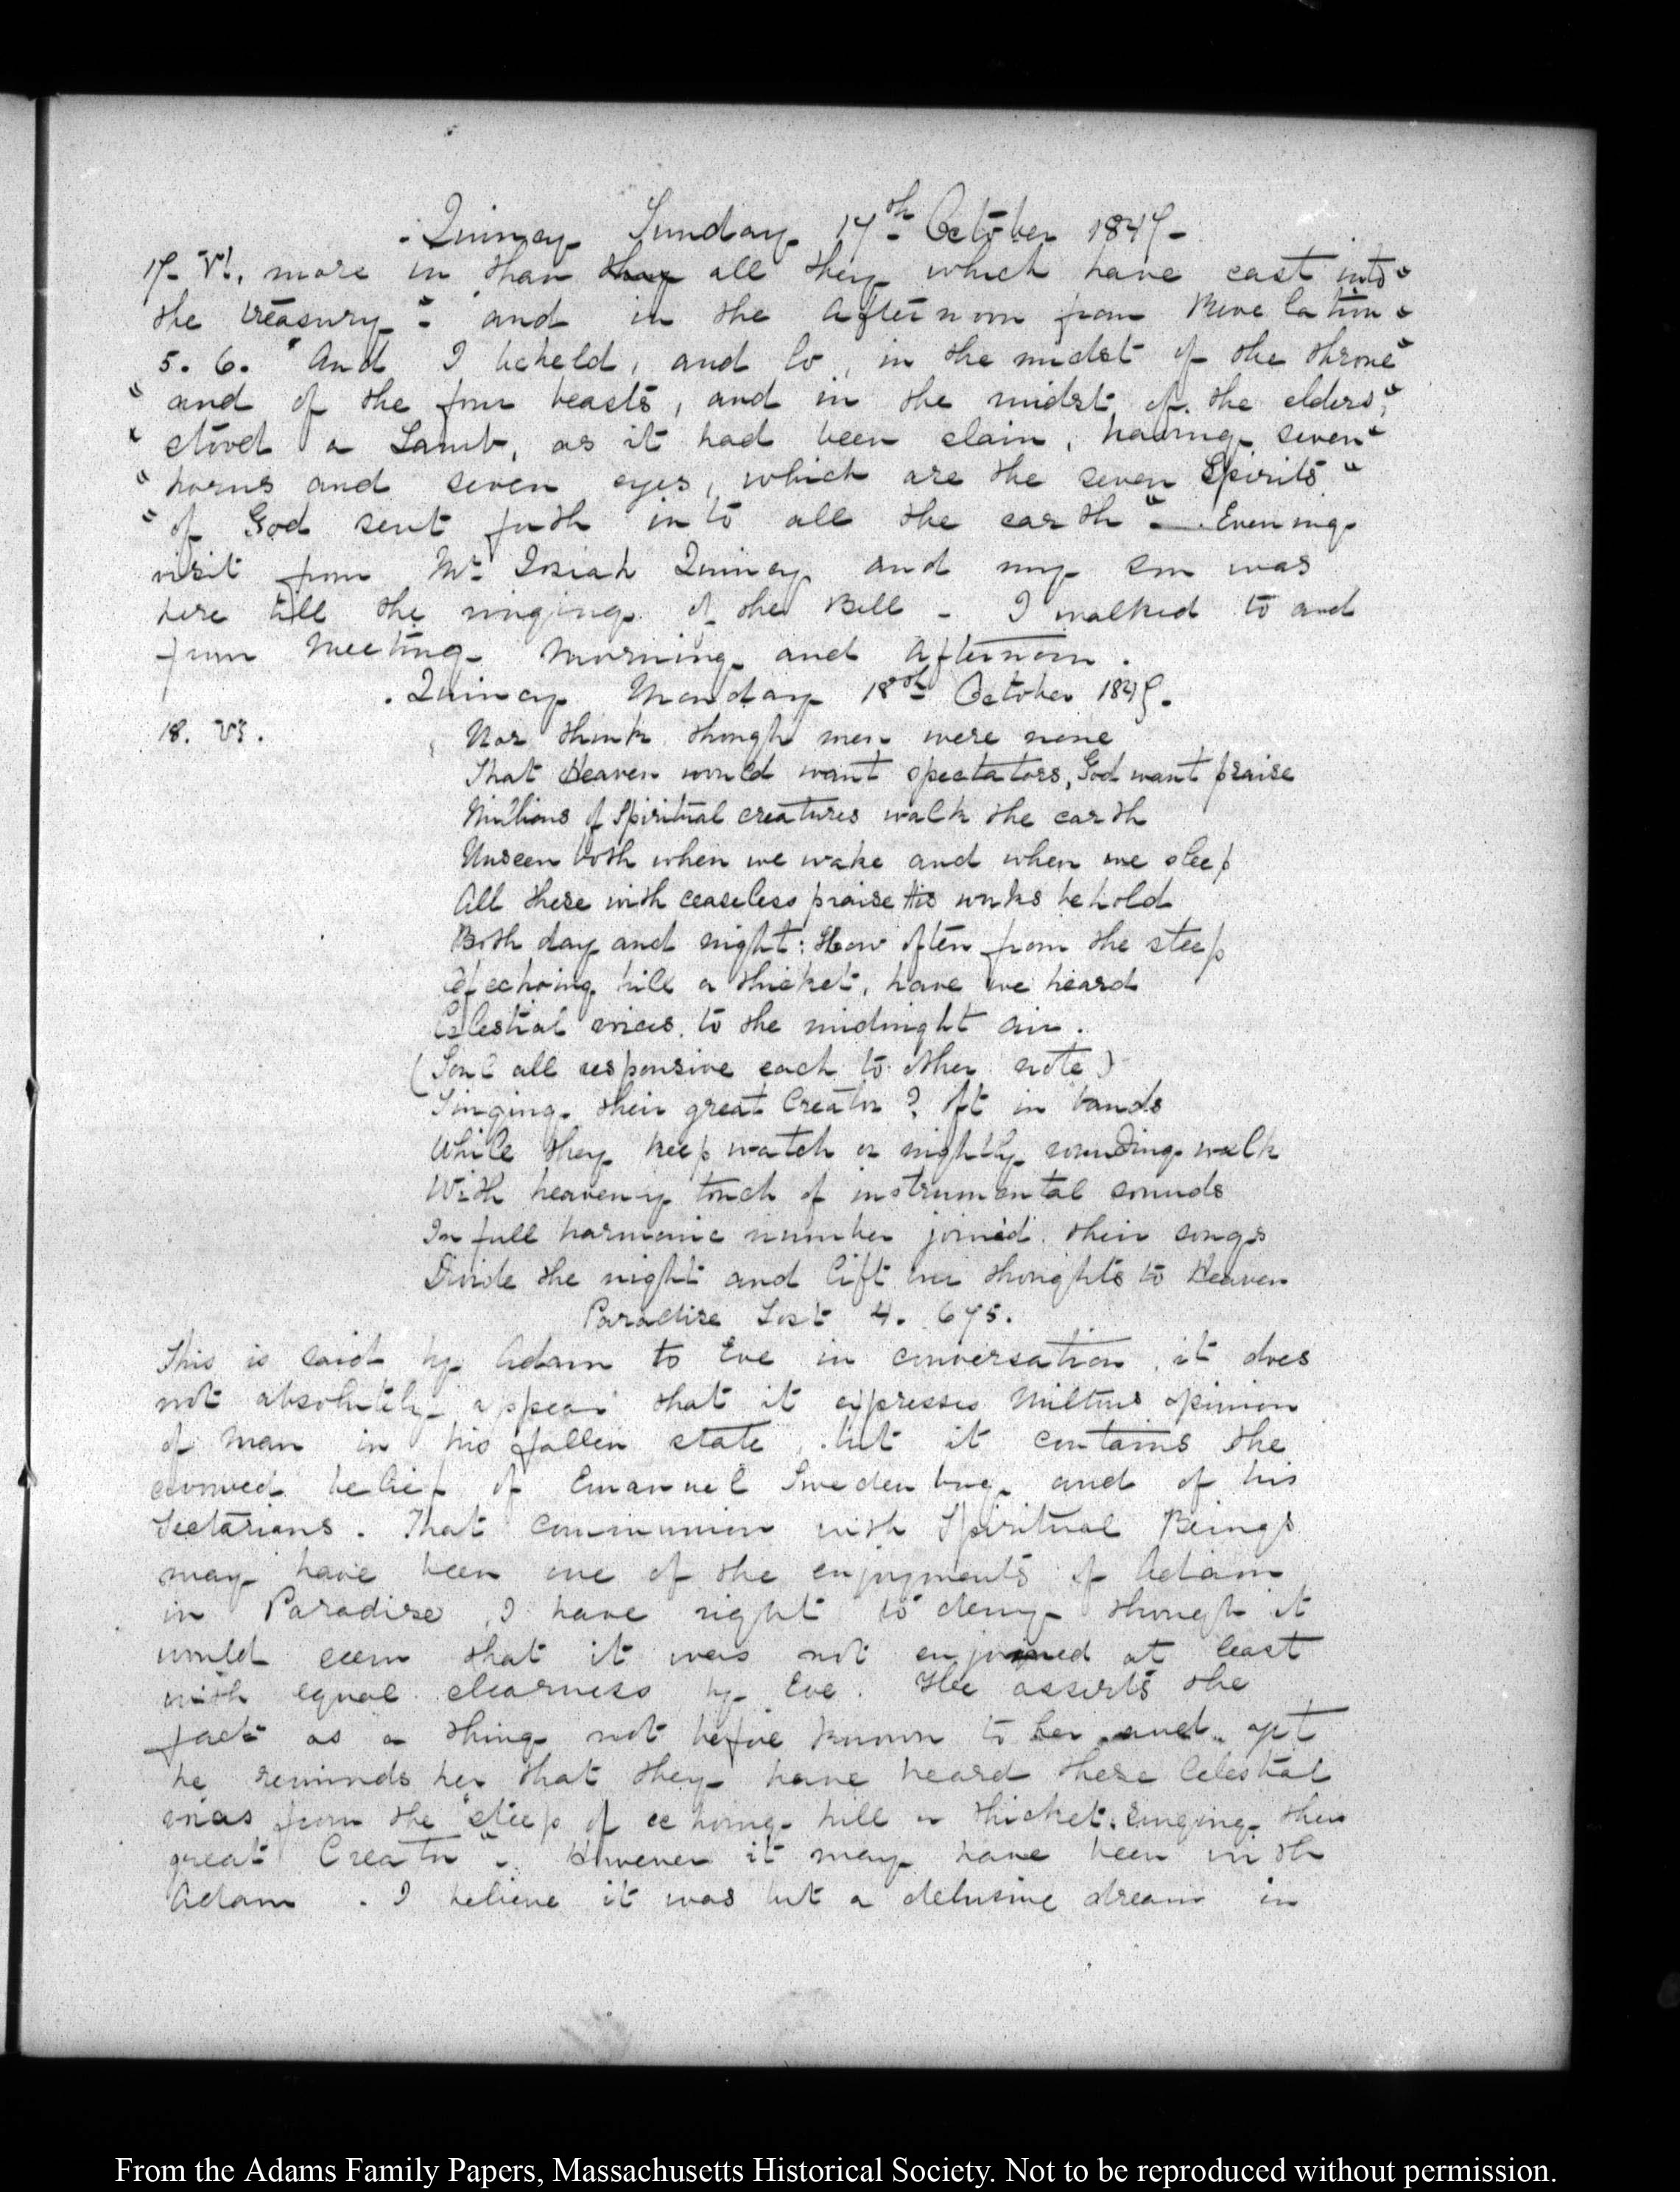 Quincy Sunday 17th October 1847-
17. VI. more in than they all they which have cast into"
the treasury" and in the Afternoon from Revelation
5. 6. "And I beheld, and lo, in the midst of the throne"
" and of the four beasts, and in the midst of the elders,"
" stood a Lamb, as it had been slain, having seven"
" horns and seven eyes, which are the seven Spirits"
" of God sent forth into all the earth" — Evening
visit from Mr Josiah Quincy and my son was
here till the ringing of the Bell - I walked to and
from Meeting Morning and Afternoon.
. Quincy Monday 18th October 1847.
18. VI. Nor think though men were none
That Heaven would want spectators, God want praise
Millions of Spiritual creatures walk the earth
Unseen both when we wake and when we sleep
All these with ceaseless praise His works behold
Both day and night: How often from the steep
Of echoing hill or thicket, have we heard
Celestial voices to the midnight air.
(Sole all responsive each to other note)
Singing their great Creator? Oft in bands
While they keep watch or nightly rounding walk
With heavenly touch of instrumental sounds
In full harmonic number joined their songs
Divide the night and lift our thoughts to Heaven
Paradise Lost 4. 675.
This is said by Adam to Eve in conversation, it does
not absolutely appear that it expresses Miltons opinion
of Man in his fallen state, but it contains the
avowed belief of Emanuel Swedenborg and of his
Sectarians. That communion with Spiritual Beings
may have been one of the enjoyments of Adam
in Paradise, I have right to deny though it
would seem that it was not enjoined at least
with equal clearness by Eve. He asserts the
fact as a thing not before known to her and yet
he reminds her that they have heard these Celestial
voices from the "steep of echoing hill or thicket singing their
great Creator". However it may have been with
Adam . I believe it was but a delusive dream in
From the Adams Family Papers, Massachusetts Historical Society. Not to be reproduced without permission.